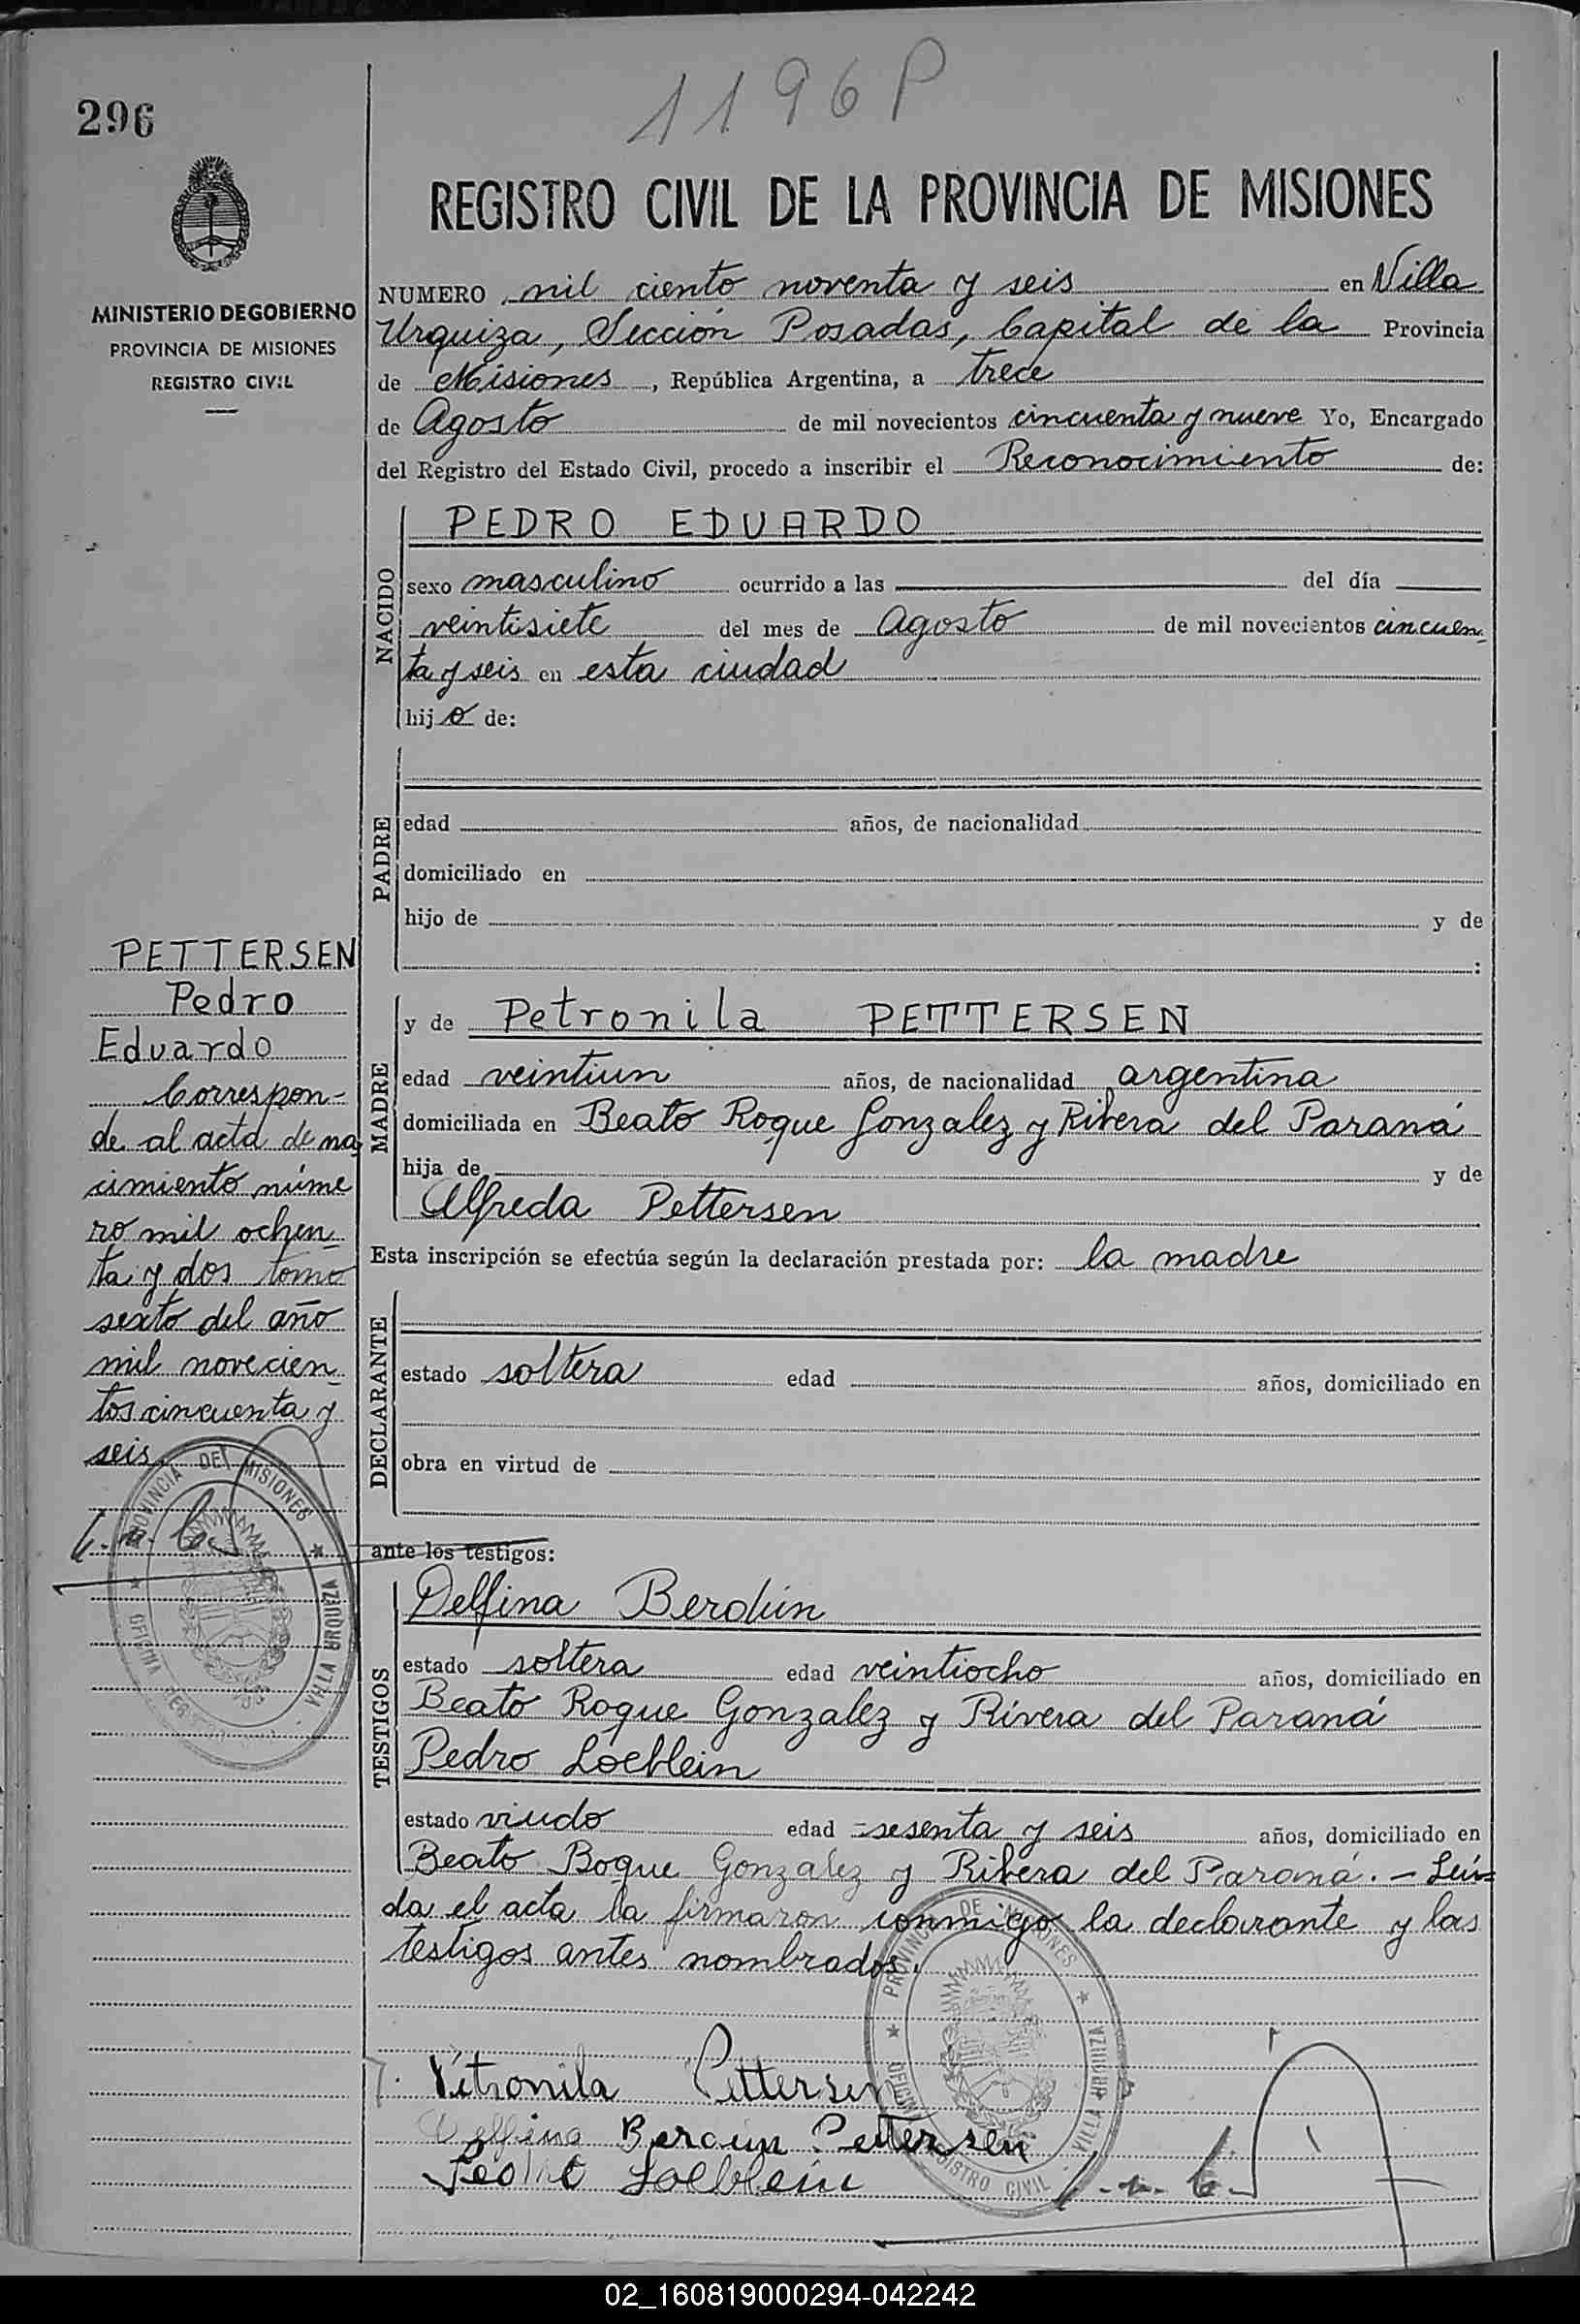 1196P
296
REGISTRO CIVIL DE LA PROVINCIA DE MISIONES
MINISTERIO DE GOBIERNO
PROVINCIA DE MISIONES
REGISTRO CIVIL
NUMERO mil ciento noventa y seis en Villa
Urquiza, Sección Posadas, Capital de la Provincia
de Misiones, República Argentina, a trece
de Agosto de mil novecientos cincuenta y nueve Yo, Encargado
del Registro del Estado Civil, procedo a inscribir el Reconocimiento de:
NACIDO
PEDRO EDUARDO
sexo masculino ocurrido a las del día
veintisiete del mes de Agosto de mil novecientos cincuen-
ta y seis en esta ciudad
hijo de:
PADRE
edad años, de nacionalidad
domiciliado en
hijo de y de
:
PETTERSEN
Pedro
Eduardo
Correspon-
de al acta de na-
cimiento núme
ro mil ochen-
ta y dos tomo
sexto del año
mil novecien-
tos cincuenta y
seis
PROVINCIA DE MISIONES
OFICINA REG
VILLA URQUIZA
MADRE
y de Petronila PETTERSEN
edad veintiun años, de nacionalidad argentina
domiciliada en Beato Roque Gonzalez y Rivera del Paraná
hija de y de
Alfreda Pettersen
Esta inscripción se efectúa según la declaración prestada por: la madre
DECLARANTE
estado soltera edad años, domiciliado en
obra en virtud de
ante los testigos:
TESTIGOS
Delfina Berdún
estado soltera edad veintiocho años, domiciliado en
Beato Roque Gonzalez y Rivera del Paraná
Pedro Loeblein
estado viudo edad sesenta y seis años, domiciliado en
Beato Boque Gonzalez y Ribera del Paraná. - Leí-
da el acta la firmaron conmigo la declarante y los
testigos antes nombrados.
PROVINCIA DE MISIONES
OFICINA REGISTRO CIVIL
VILLA URQUIZA
Petronila Pettersen
Delfina Berdun Pettersen
Pedro Loeblein
02_160819000294-042242